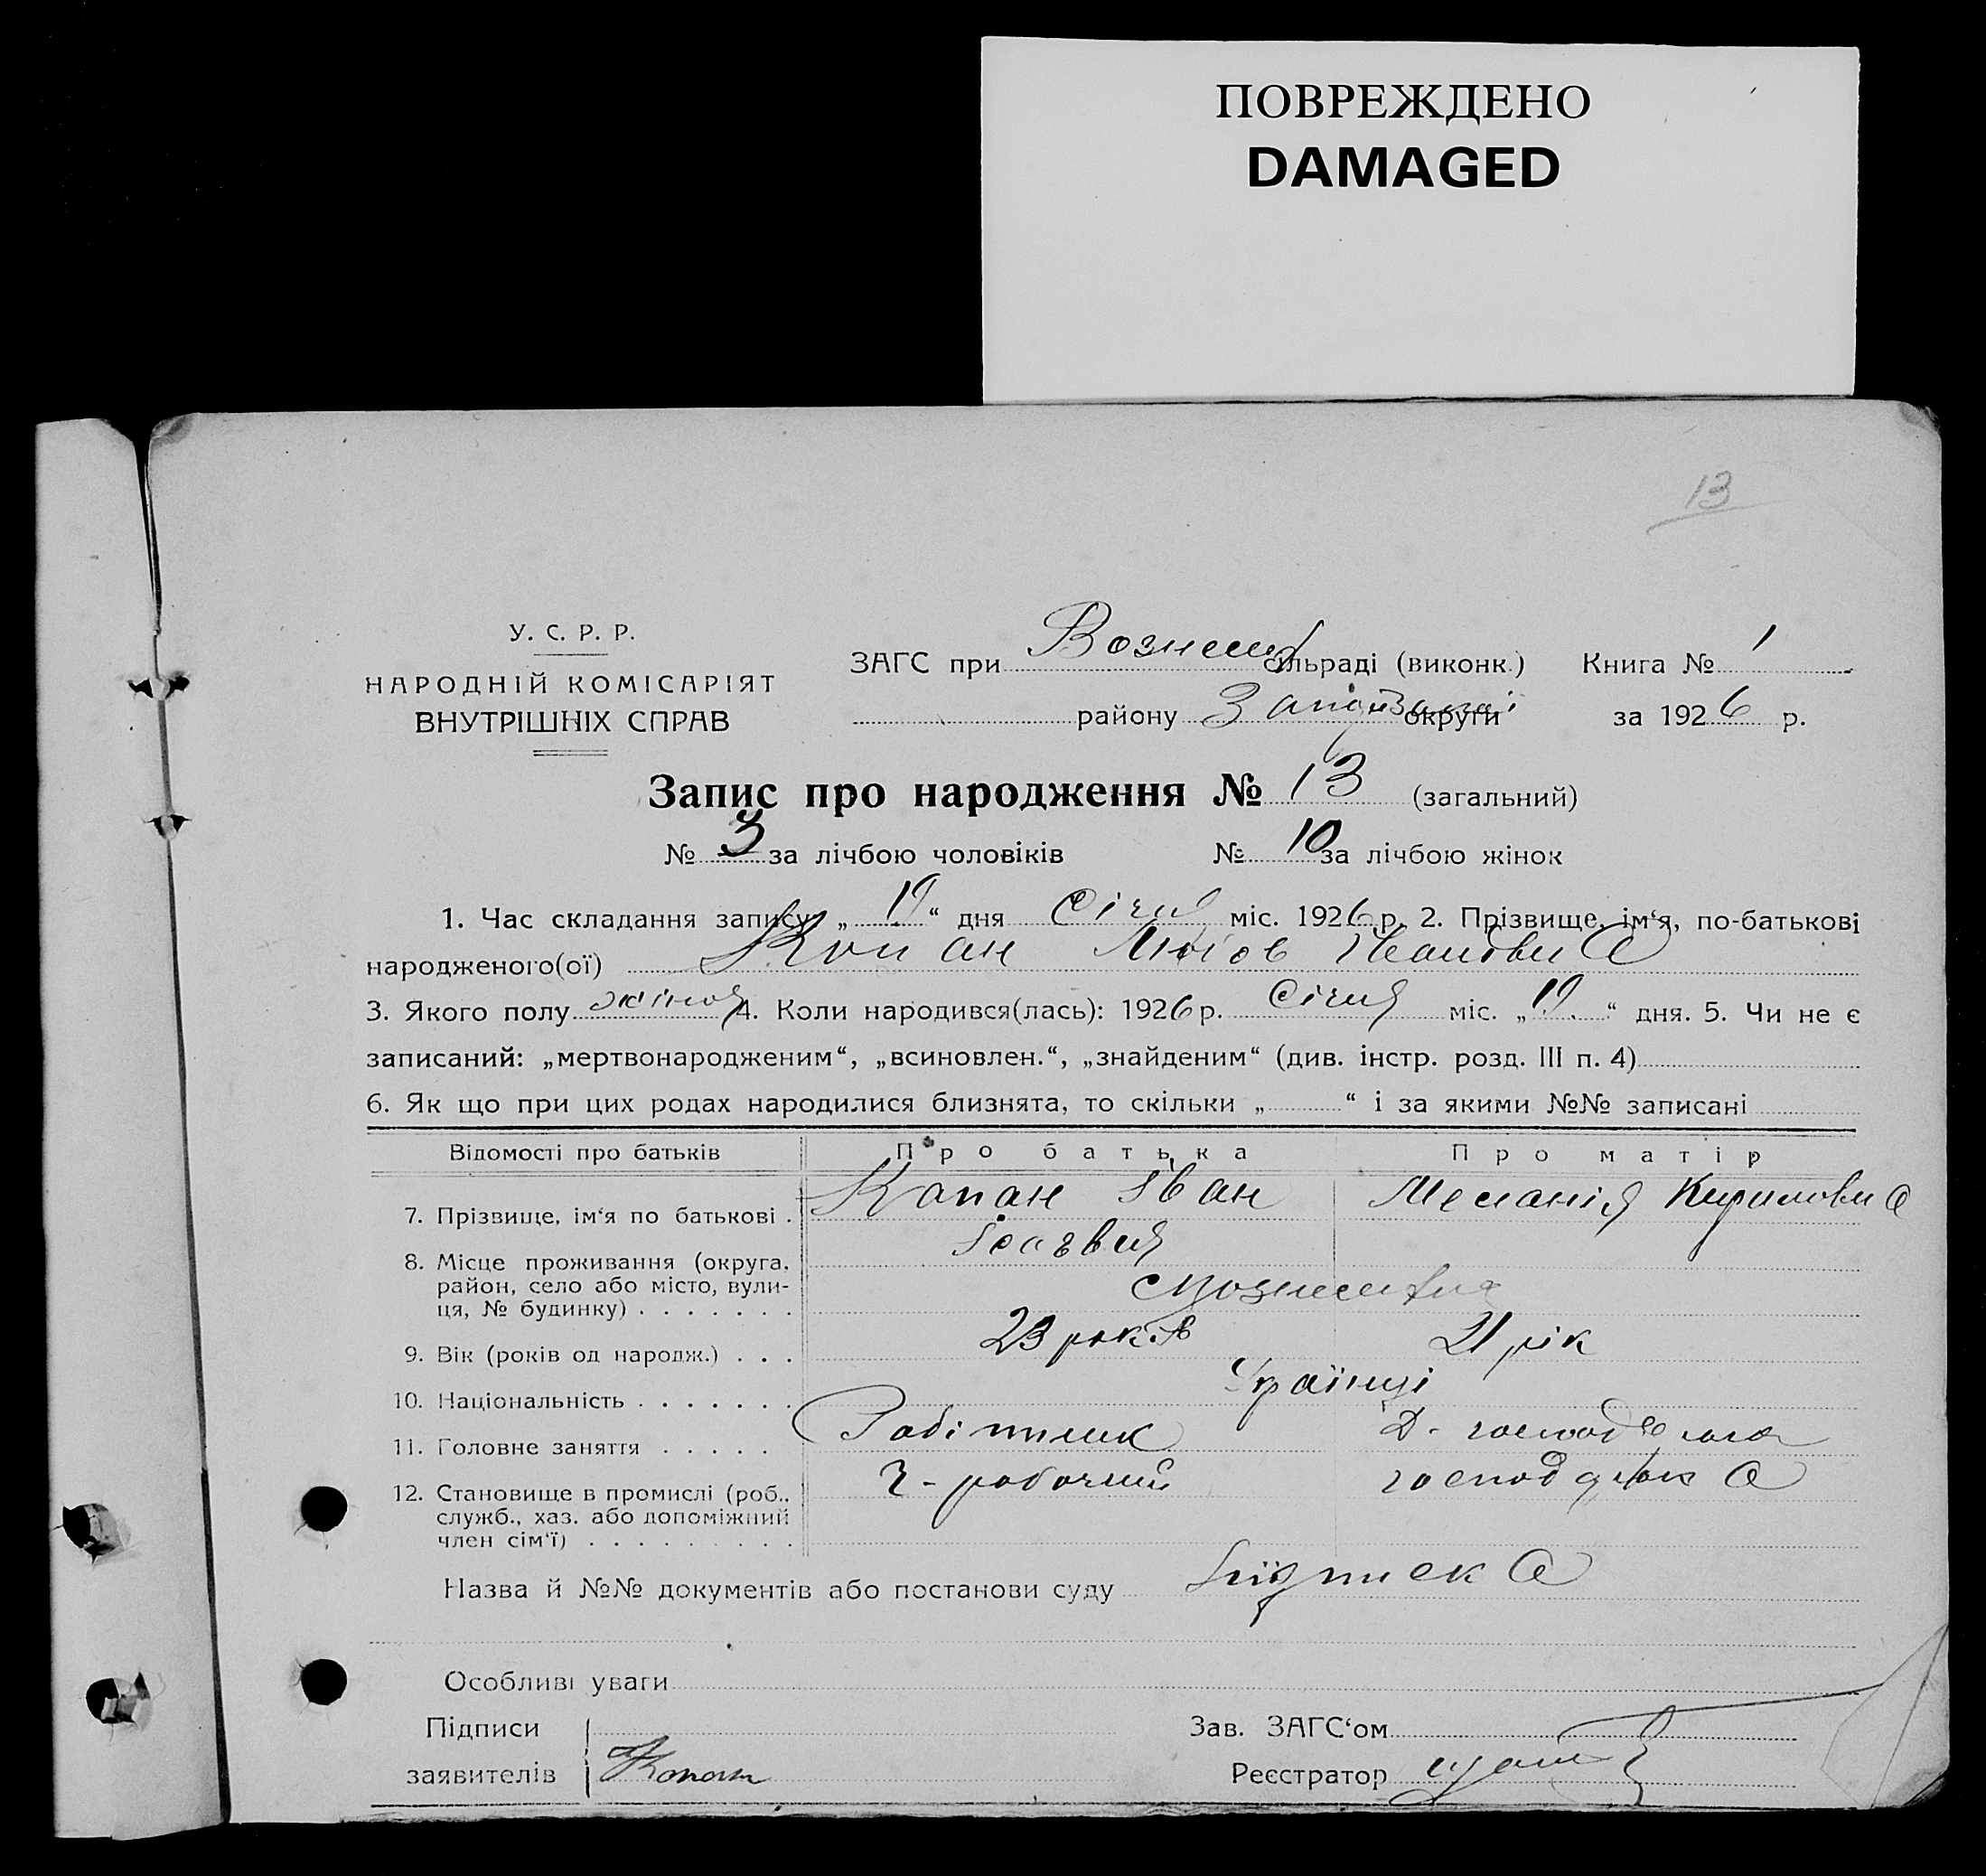 ПОВРЕЖДЕНО
DAMAGED
13
У. С. Р. Р.
НАРОДНІЙ КОМІСАРІЯТ
ВНУТРІШНІХ СПРАВ
ЗАГС при сільраді (виконк.) Книга № 1
району округи за 1926 р.
Запис про народження № 13 (загальний)
№ 3 за лічбою чоловіків № 10 за лічбою жінок
1. Час складання запису „19“ дня Січня міс. 1926 р. 2. Прізвище, ім‘я, по-батькові
народженого(ої) Копан Любов Івановна
3. Якого полу жіноч 4. Коли народився(лась): 1926 р. Січня міс. „19.“ дня. 5. Чи не є
записаний: „мертвонародженим“, „всиновлен.“, „знайденим“ (див. інстр. розд. III п. 4)
6. Як що при цих родах народилися близнята, то скільки „ “ і за якими №№ записані
Відомості про батьків Про батька Про матір
7. Прізвище, ім‘я по батькові . Копан Іван Меланія Кириловна
8. Місце проживання (округа,
район, село або місто, вули-
ця, № будинку) . . . . . . .
9. Вік (років од народж.) . . . 23 років 21 рік
10. Національність . . . . . . . Українці
11. Головне заняття . . . . . Робітник Д. господарка
12. Становище в промислі (роб., Ч-робочий господарка
служб., хаз. або допоміжний
член сім‘ї) . . . . . . . . .
Назва й №№ документів або постанови суду Підписка
Особливі уваги
Підписи Зав. ЗАГС‘ом
заявителів Копан Реєстратор